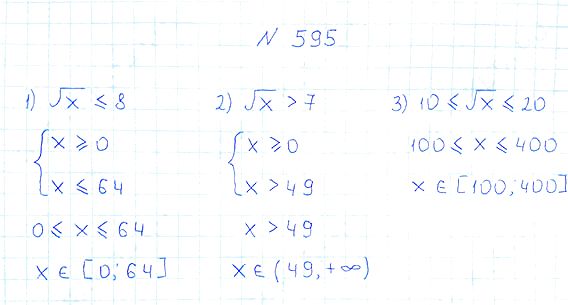 N 595
1) √x ≤ 8
{ x ≥ 0
x ≤ 64
0 ≤ x ≤ 64
x ∈ [0; 64]
2) √x > 7
{ x ≥ 0
x > 49
x > 49
x ∈ (49, +∞)
3) 10 ≤ √x ≤ 20
100 ≤ x ≤ 400
x ∈ [100; 400]